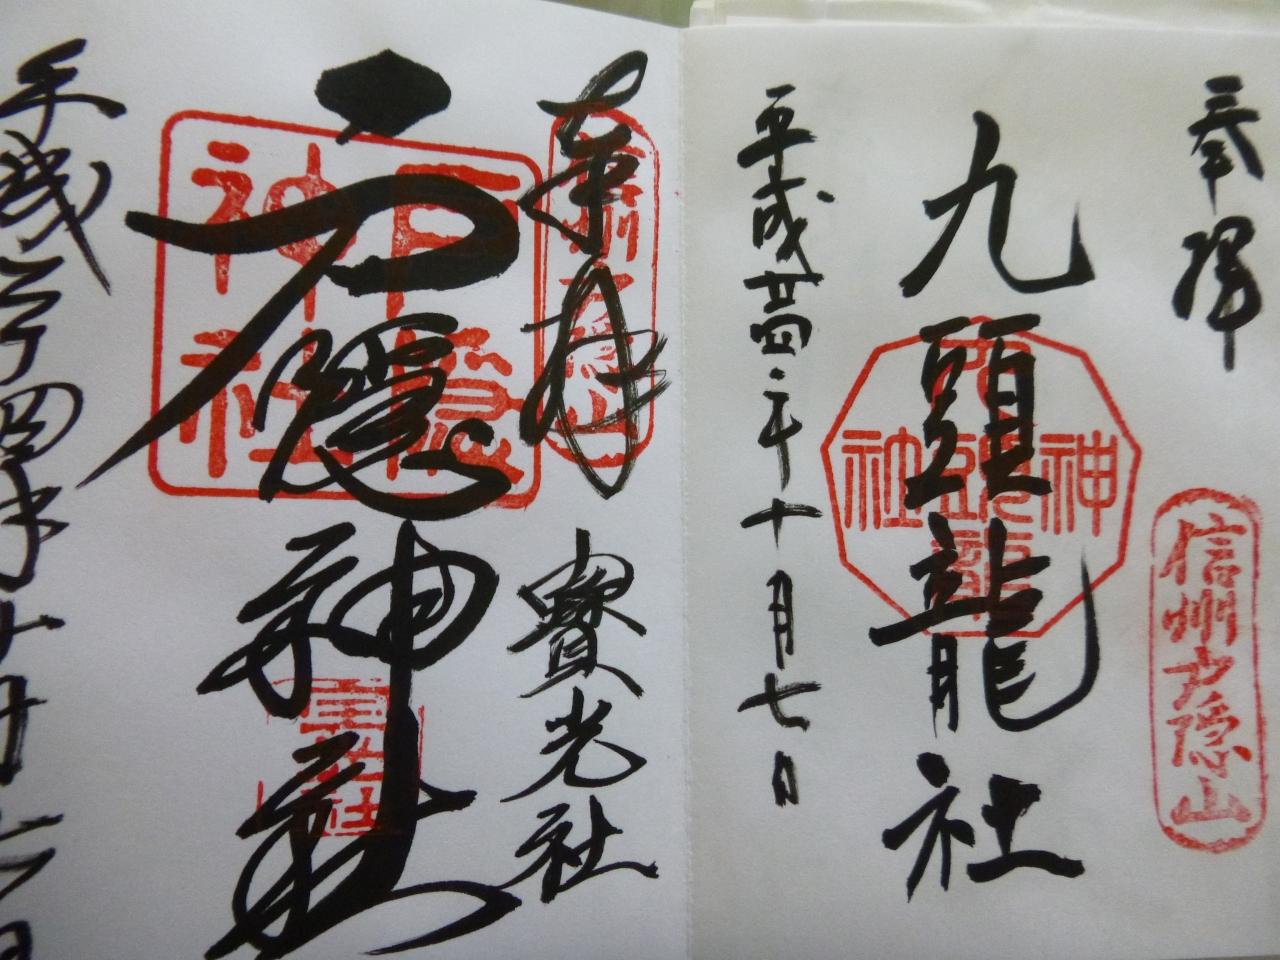 奉拝
信州戸隠山
九頭龍社
神社
平成廿四・二千十月七日
奉拝
寶光社
戸隠神社
戸隠神社
平成二十四年十月七日